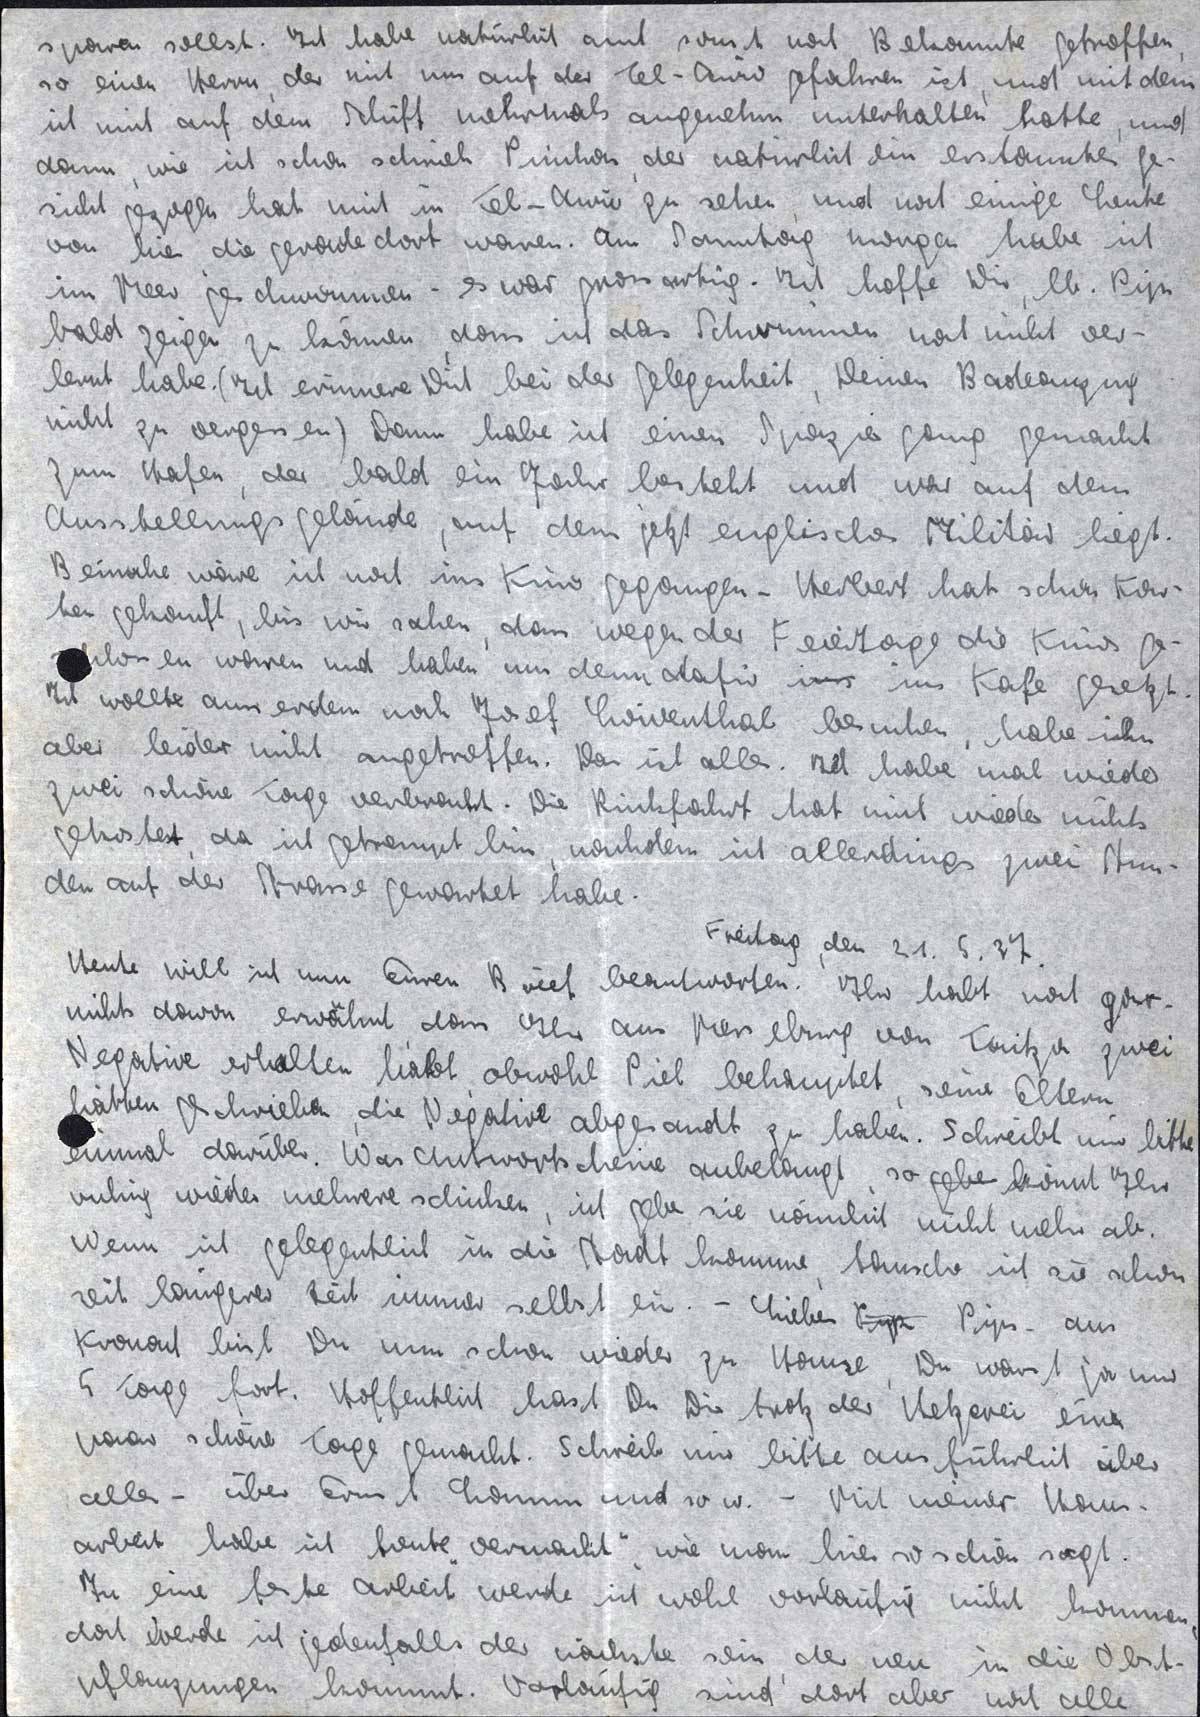 sparen sollst. Ich habe natürlich auch sonst noch Bekannte getroffen,
so einen Herrn, der mit uns auf der Tel-Aviv gefahren ist, und mit dem
ich mich auf dem Schiff mehrmals angenehm unterhalten hatte, und
dann, wie ich schon schrieb Pinchas, der natürlich ein erstauntes Ge-
sicht gezogen hat mich in Tel-Aviv zu sehen, und noch einige Leute
von hier die gerade dort waren. Am Sonntag morgen habe ich
im Meer geschwommen - es war grossartig. Ich hoffe Dir, lb. Pips
bald zeigen zu können, dass ich das Schwimmen noch nicht ver-
lernt habe. (Ich erinnere Dich bei der Gelegenheit, Deinen Badeanzug
nicht zu vergessen) Dann habe ich einen Spaziergang gemacht
zum Hafen, der bald ein Jahr besteht und war auf dem
Ausstellungsgelände, auf dem jetzt englisches Militär liegt.
Beinahe wäre ich noch ins Kino gegangen - Herbert hat schon Kar-
ten gekauft, bis wir sahen, dass wegen der Feiertage die Kinos ge-
schlossen waren und haben uns dann dafür ins Kafe gesetzt.
Ich wollte ausserdem noch Josef Löwenthal besuchen, habe ihn
aber leider nicht angetroffen. Das ist alles. Ich habe mal wieder
zwei schöne Tage verbracht. Die Rückfahrt hat mich wieder nichts
gekostet, da ich getrampt bin, nachdem ich allerdings zwei Stun-
den auf der Strasse gewartet habe.
Freitag, den 21.5.37.
Heute will ich nun Euren Brief beantworten. Ihr habt noch gar-
nichts davon erwähnt dass Ihr aus Merseburg von Taitza zwei
Negative erhalten habt, obwohl Piel behauptet, seine Eltern
hätten geschrieben, die Negative abgesandt zu haben. Schreibt mir bitte
einmal darüber. Was Antwortscheine anbelangt, so gebe könnt Ihr
ruhig wieder mehrere schicken, ich gebe sie nämlich nicht mehr ab.
Wenn ich gelegentlich in die Stadt komme, tausche ich sie schon
seit längerer Zeit immer selbst ein. - Lieber Pips - aus
Kronach bist Du nun schon wieder zu Hause, Du warst ja nur
5 Tage fort. Hoffentlich hast Du Dir trotz der Hetzerei ein
paar schöne Tage gemacht. Schreib mir bitte ausführlich über
alles - über Ernst Lamm und so w. - Mit meiner Haus-
arbeit habe ich heute „vermacht“, wie man hier so schön sagt.
In eine feste Arbeit werde ich wohl vorläufig nicht kommen,
doch werde ich jedenfalls der nächste sein, der neu in die Obst-
pflanzungen kommt. Vorläufig sind dort aber noch alle